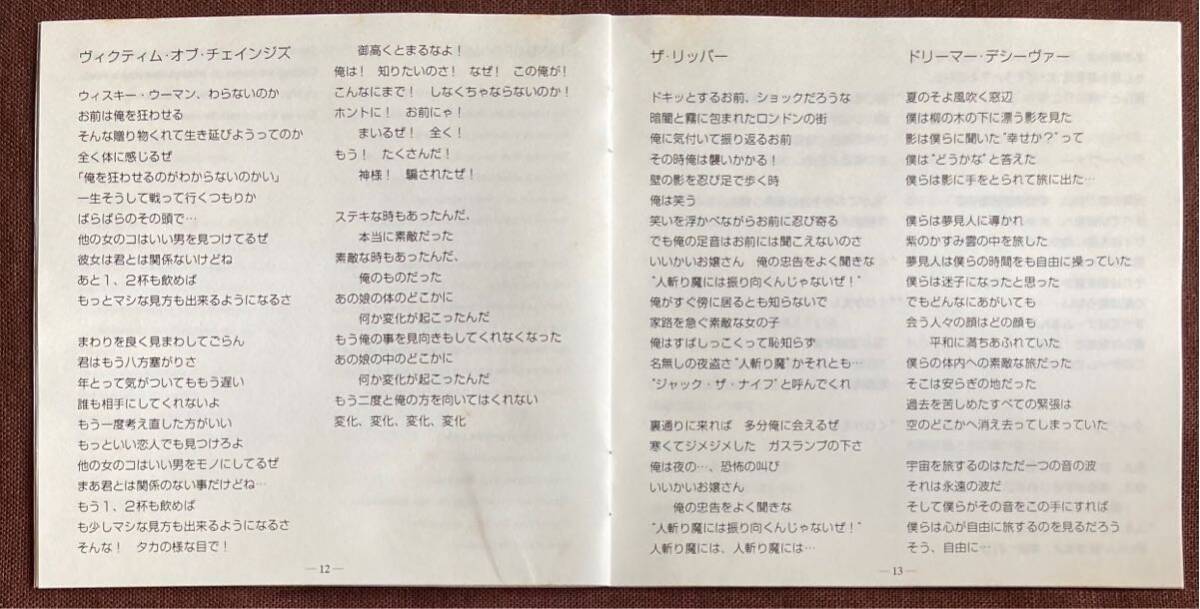 ヴィクティム・オブ・チェインジズ
ウィスキー・ウーマン、わらないのか
お前は俺を狂わせる
そんな贈り物くれて生き延びようってのか
全く体に感じるぜ
「俺を狂わせるのがわからないのかい」
一生そうして戦って行くつもりか
ばらばらのその頭で…
他の女のコはいい男を見つけてるぜ
彼女は君とは関係ないけどね
あと1、2杯も飲めば
もっとマシな見方も出来るようになるさ
まわりを良く見まわしてごらん
君はもう八方塞がりさ
年とって気がついてももう遅い
誰も相手にしてくれないよ
もう一度考え直した方がいい
もっといい恋人でも見つけろよ
他の女のコはいい男をモノにしてるぜ
まあ君とは関係のない事だけどね…
もう1、2杯も飲めば
も少しマシな見方も出来るようになるさ
そんな！　タカの様な目で！
御高くとまるなよ！
俺は！　知りたいのさ！　なぜ！　この俺が！
こんなにまで！　しなくちゃならないのか！
ホントに！　お前にゃ！
まいるぜ！　全く！
もう！　たくさんだ！
神様！　騙されたぜ！
ステキな時もあったんだ、
本当に素敵だった
素敵な時もあったんだ、
俺のものだった
あの娘の体のどこかに
何か変化が起こったんだ
もう俺の事を見向きもしてくれなくなった
あの娘の中のどこかに
何か変化が起こったんだ
もう二度と俺の方を向いてはくれない
変化、変化、変化、変化
—12—
ザ・リッパー
ドキッとするお前、ショックだろうな
暗闇と霧に包まれたロンドンの街
俺に気付いて振り返るお前
その時俺は襲いかかる！
壁の影を忍び足で歩く時
俺は笑う
笑いを浮かべながらお前に忍び寄る
でも俺の足音はお前には聞こえないのさ
いいかいお嬢さん　俺の忠告をよく聞きな
“人斬り魔には振り向くんじゃないぜ！”
俺がすぐ傍に居るとも知らないで
家路を急ぐ素敵な女の子
俺はすばしっこくって恥知らず
名無しの夜盗さ“人斬り魔”かそれとも…
“ジャック・ザ・ナイフ”と呼んでくれ
裏通りに来れば　多分俺に会えるぜ
寒くてジメジメした　ガスランプの下さ
俺は夜の…、恐怖の叫び
いいかいお嬢さん
俺の忠告をよく聞きな
“人斬り魔には振り向くんじゃないぜ！”
人斬り魔には、人斬り魔には…
ドリーマー・デシーヴァー
夏のそよ風吹く窓辺
僕は柳の木の下に漂う影を見た
影は僕らに聞いた“幸せか？”って
僕は“どうかな”と答えた
僕らは影に手をとられて旅に出た…
僕らは夢見人に導かれ
紫のかすみ雲の中を旅した
夢見人は僕らの時間をも自由に操っていた
僕らは迷子になったと思った
でもどんなにあがいても
会う人々の顔はどの顔も
平和に満ちあふれていた
僕らの体内への素敵な旅だった
そこは安らぎの地だった
過去を苦しめたすべての緊張は
空のどこかへ消え去ってしまっていた
宇宙を旅するのはただ一つの音の波
それは永遠の波だ
そして僕らがその音をこの手にすれば
僕らは心が自由に旅するのを見るだろう
そう、自由に…
—13—